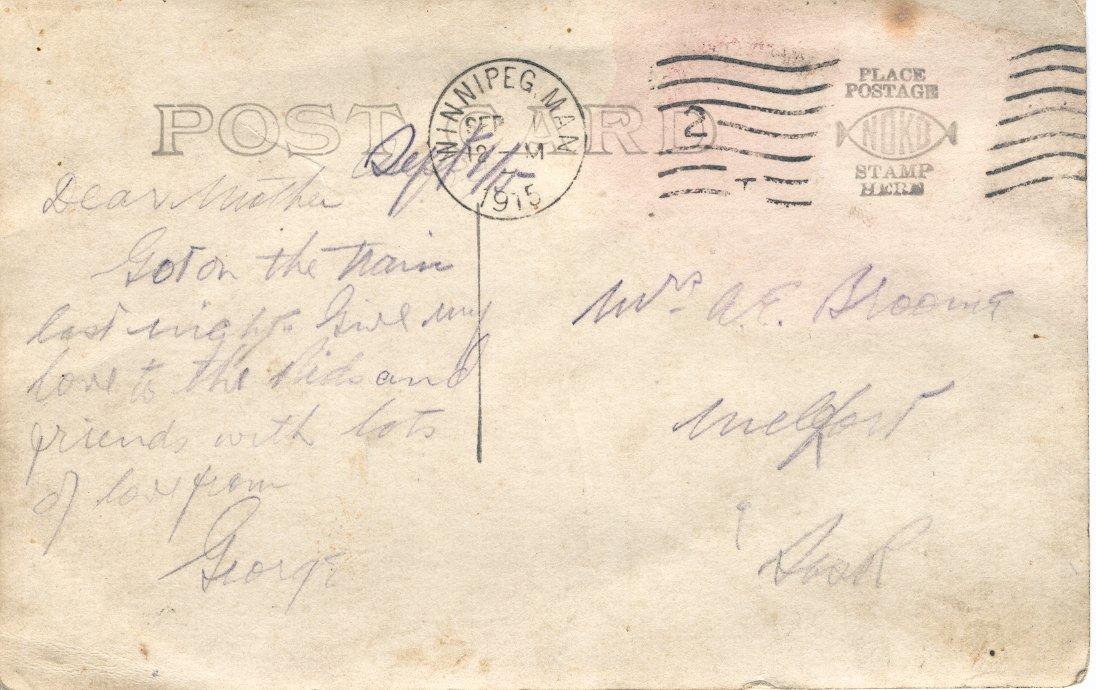 POST CARD
WINNIPEG, MAN
SEP
12 M
1915
2
PLACE
POSTAGE
NOKO
STAMP
HERE
Sept 1/15
Dear Mother
Got on the train
last night. Give my
love to the Kids and
friends with lots
of love from
George
Mrs. A.E. Broome
Melfort
Sask